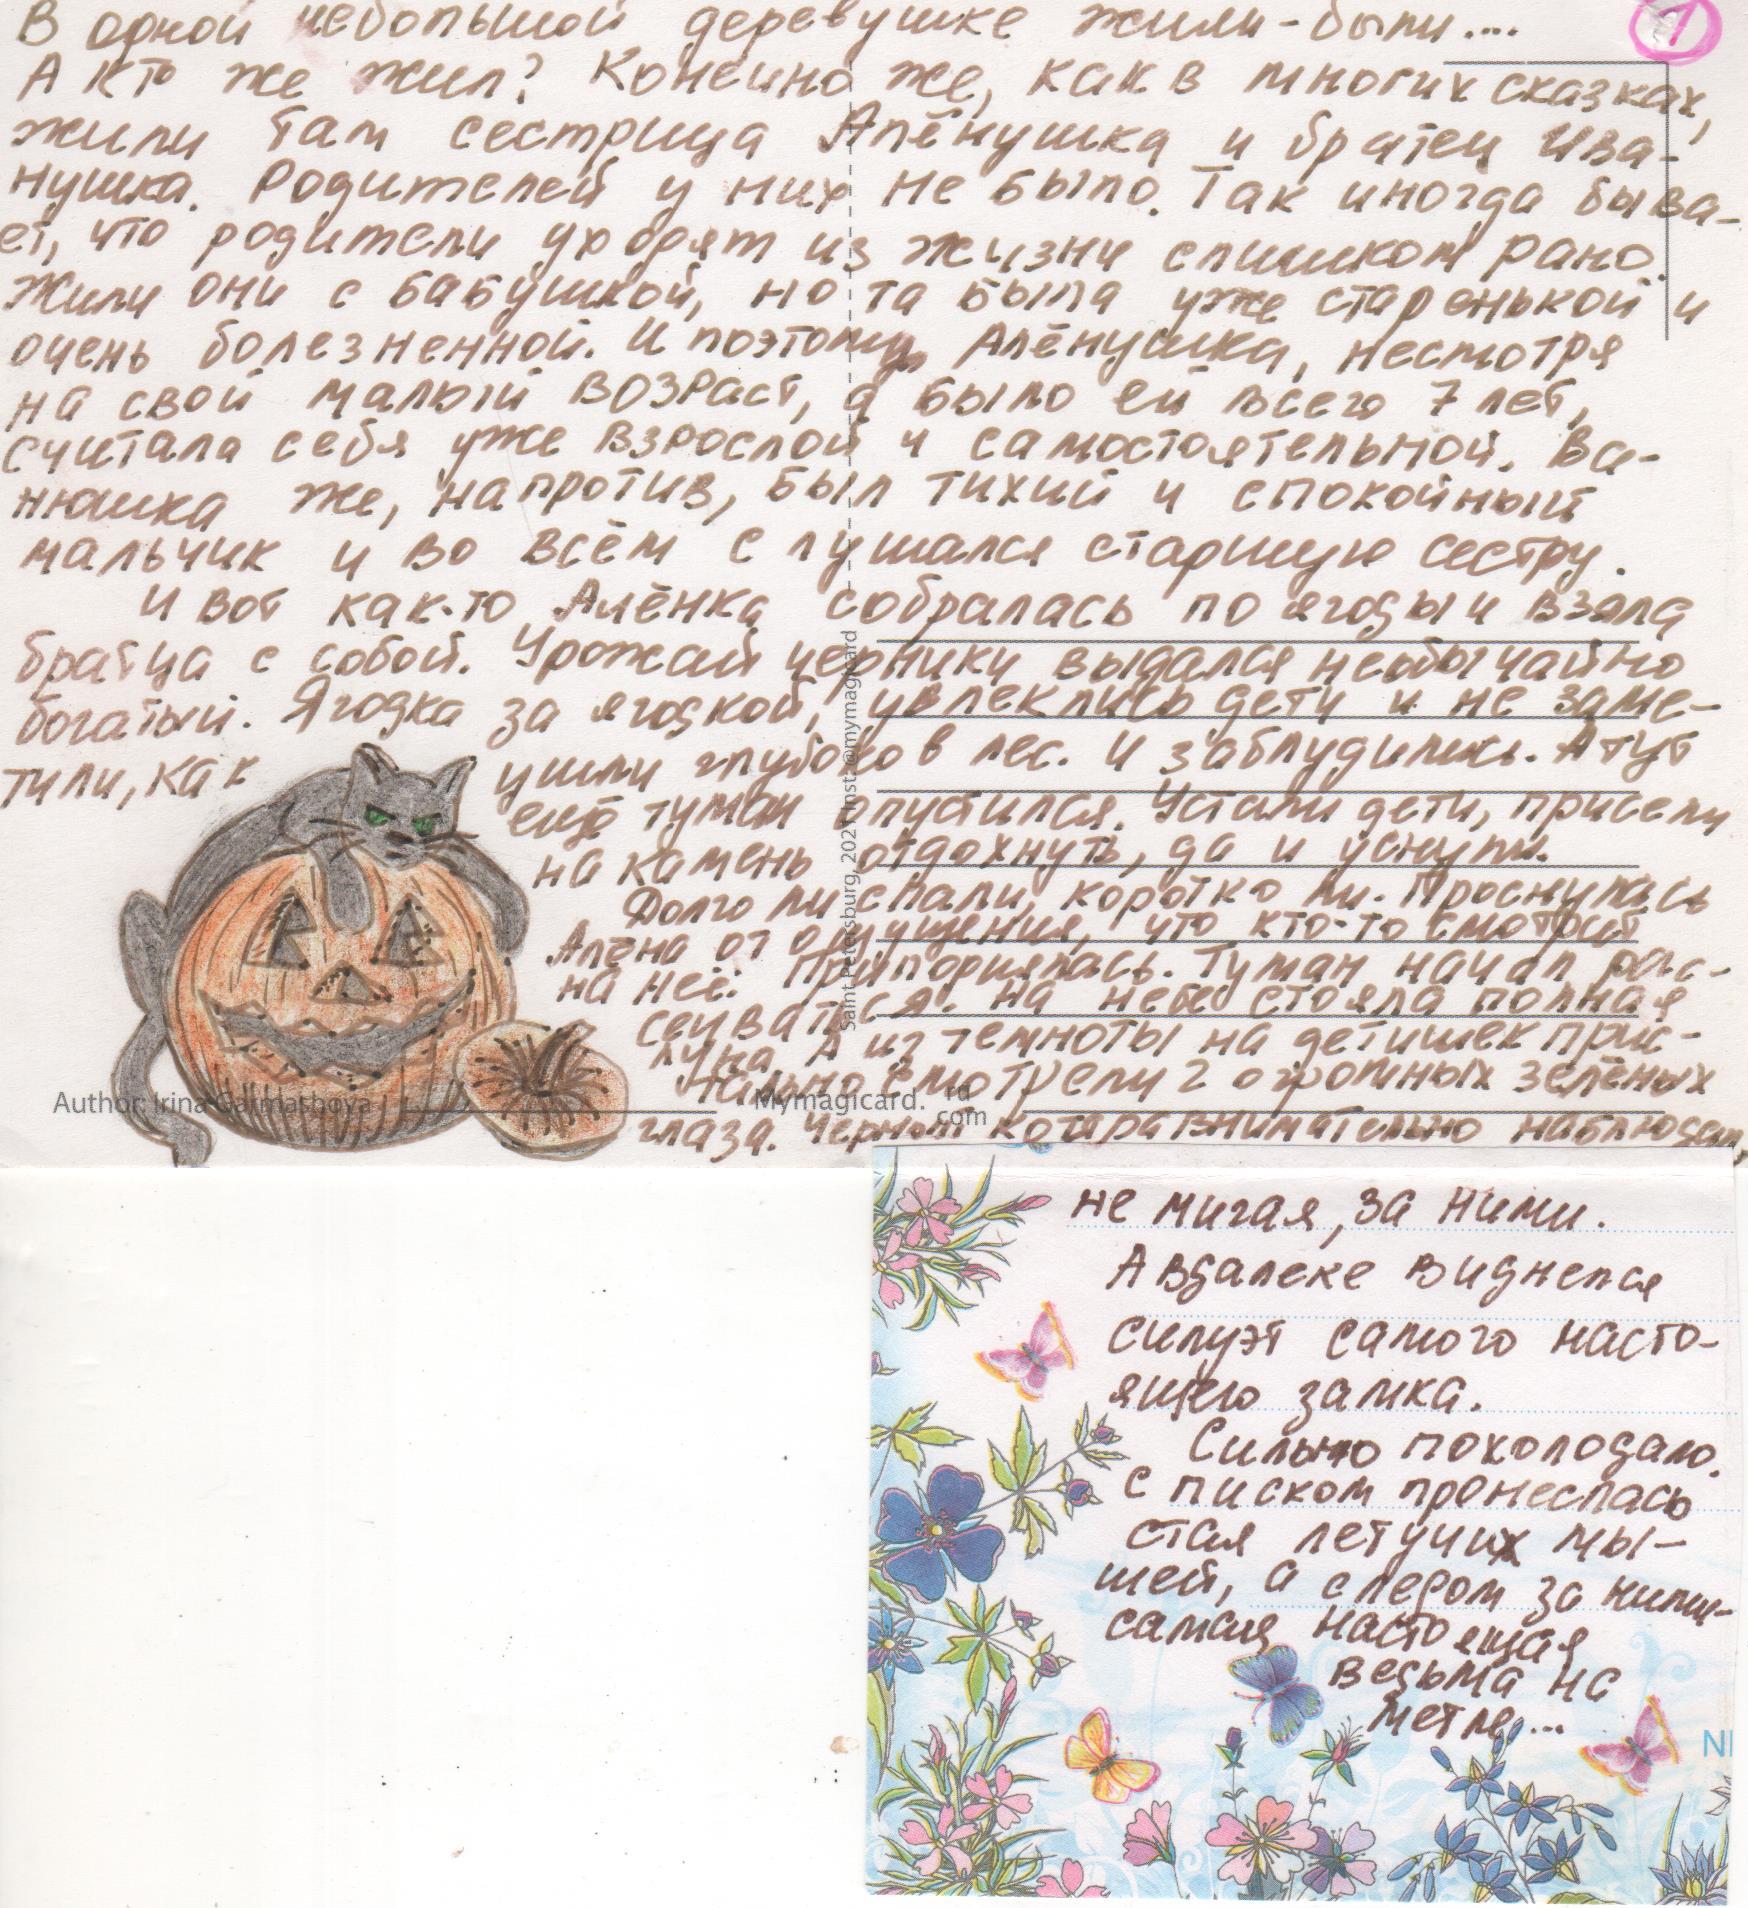 В одной небольшой деревушке жили-были....
1
А кто же жил? Конечно же, как в многих сказках,
жили там сестрица Алёнушка и братец Ива-
нушка. Родителей у них не было. Так иногда быва-
ет, что родители уходят из жизни слишком рано.
Жили они с бабушкой, но та была уже старенькой и
очень болезненной. И поэтому Алёнушка, несмотря
на свой малый возраст, а было ей всего 7 лет,
считала себя уже взрослой и самостоятельной. Ва-
нюшка же, напротив, был тихий и спокойный
мальчик и во всём слушался старшую сестру.
И вот как-то Алёнка собралась по ягоды и взяла
братца с собой. Урожай черники выдался необычайно
богатый. Ягодка за ягодкой, увлеклись дети и не заме-
тили, как ушли глубоко в лес. И заблудились. А тут
ещё туман опустился. Устали дети, присели
на камень отдохнуть, да и уснули.
Долго ли спали, коротко ли. Проснулась
Алёна от ощущения, что кто-то смотрит
на неё. Туман начал рас-
сеиваться. На небе стояла полная
луна. А из темноты на детишек прис-
тально смотрели 2 огромных зелёных
глаза. Черный внимательно наблюдал,
Author: Irina Garmashova
Mymagicard. ru
com
Saint Petersburg, 2021 inst: @mymagicard
не мигая, за ними.
А вдалеке виднелся
силуэт самого насто-
ящего замка.
Сильно похолодало.
С писком пронеслась
стая летучих мы-
шей, а следом за ними-
самая настоящая
ведьма на
метле...